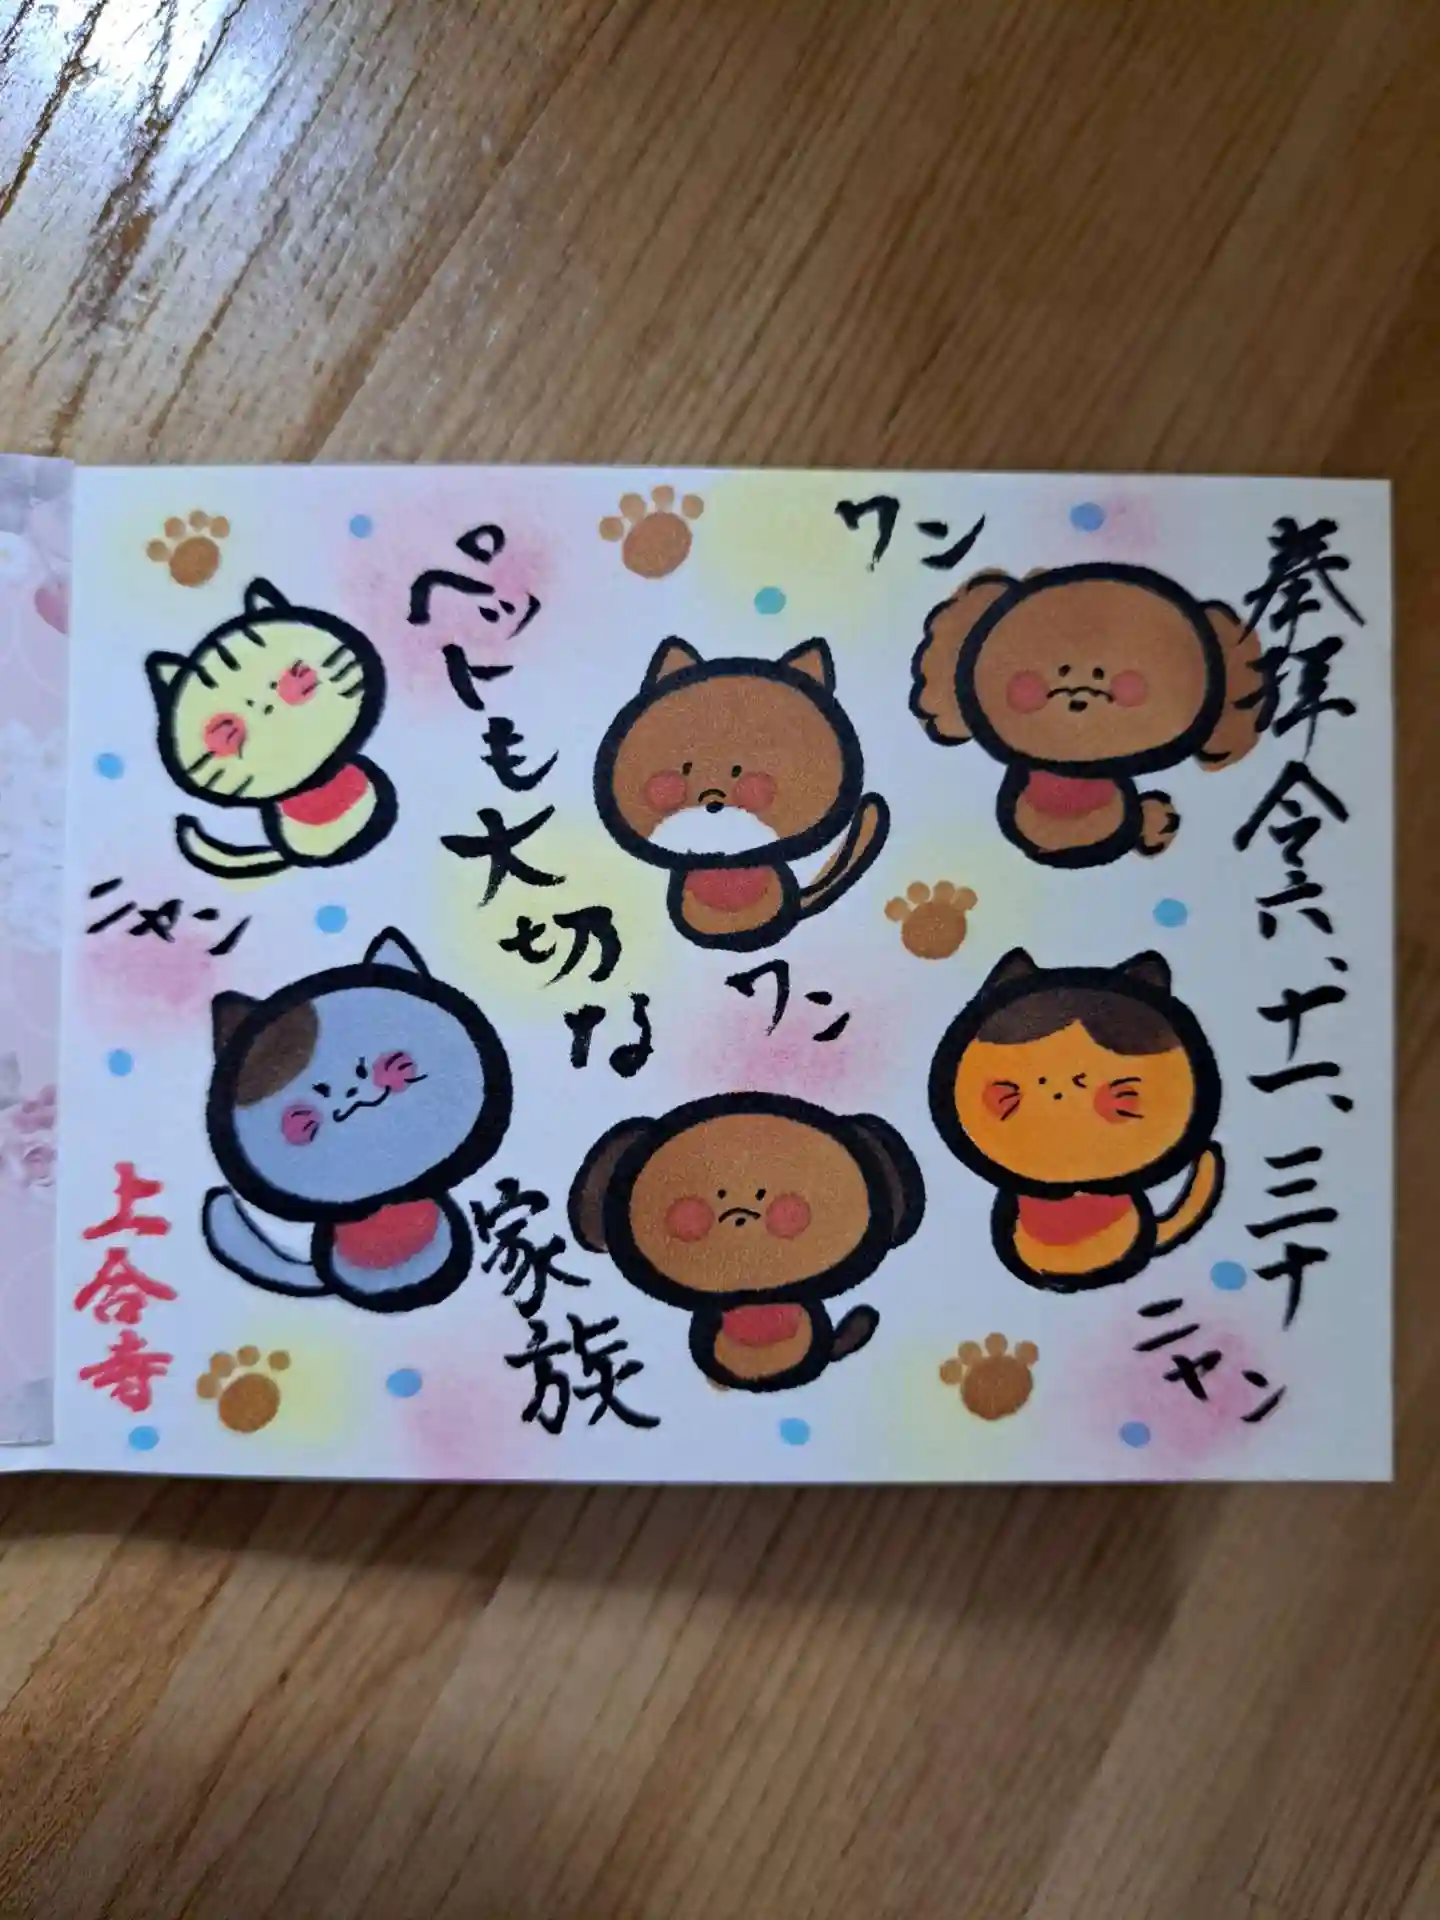 奉拝 令六、十一、三十
ワン
ペットも大切な
家族
ワン
ニャン
ニャン
上合寺